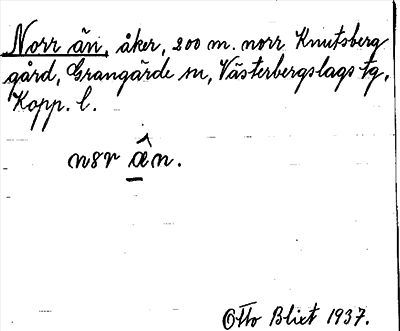 Norr ån, åker, 200 m. norr Knutsberg
gård, Grangärde sn, Västerbergslags tg,
Kopp. l.
Otto Blixt 1937.